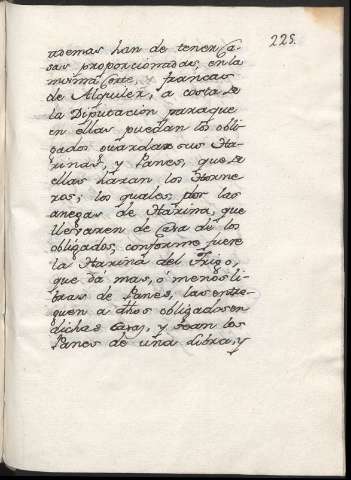 225.
ademas han de tener Ca-
sas proporcionadas, en la
misma Corte, y francas
de Alquiler, a costa de
la Diputacion paraque
en ellas puedan los obli-
gados guardar sus Ha-
rinas, y Panes, que de
ellas haran los Horne-
ros; los quales, por las
anegas de Harina, que
llevaren de Casa de los
obligados, conforme fuere
la Harina del Trigo,
que dá mas, ó menos li-
bras de Panes, las entre-
guen a dhos obligados en
dichas casas, y sean los
Panes de una Libra, y